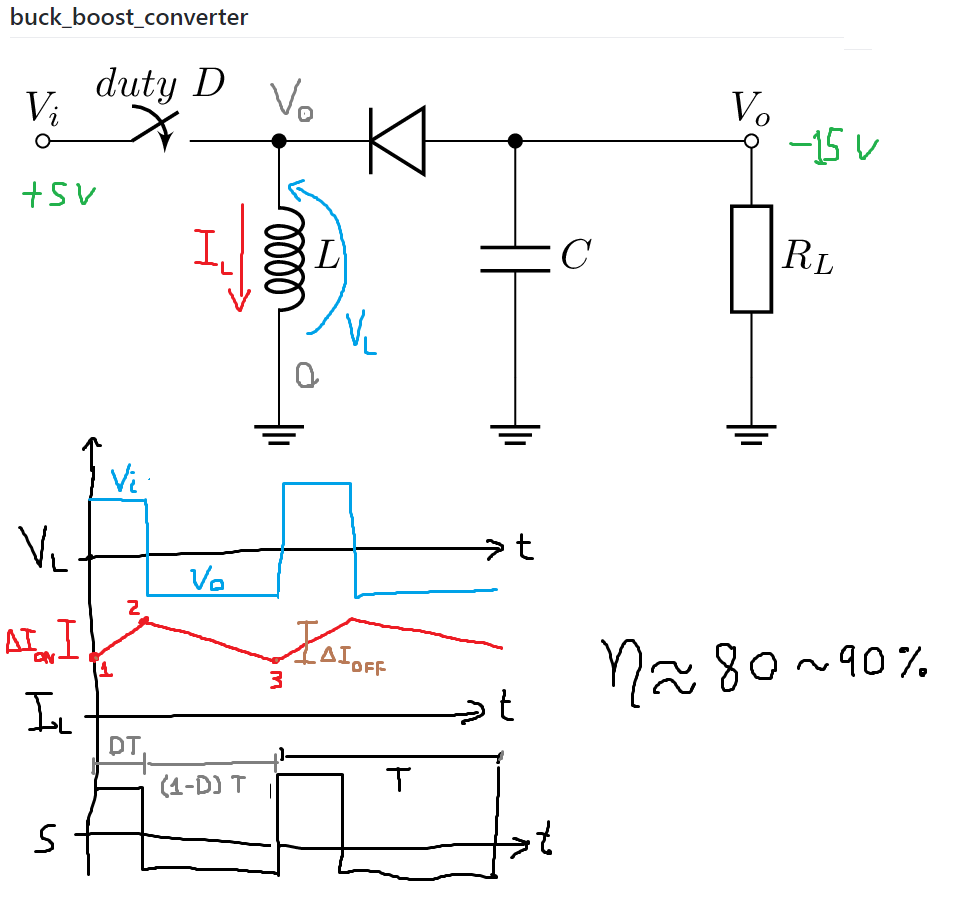 buck_boost_converter
duty D
V_i
V_o
V_o
+5V
-15V
I_L
L
V_L
C
R_L
0
V_i
V_L
t
V_o
2
ΔI_ON
1
ΔI_OFF
3
η≈80~90%
I_L
t
DT
(1-D)T
T
S
t